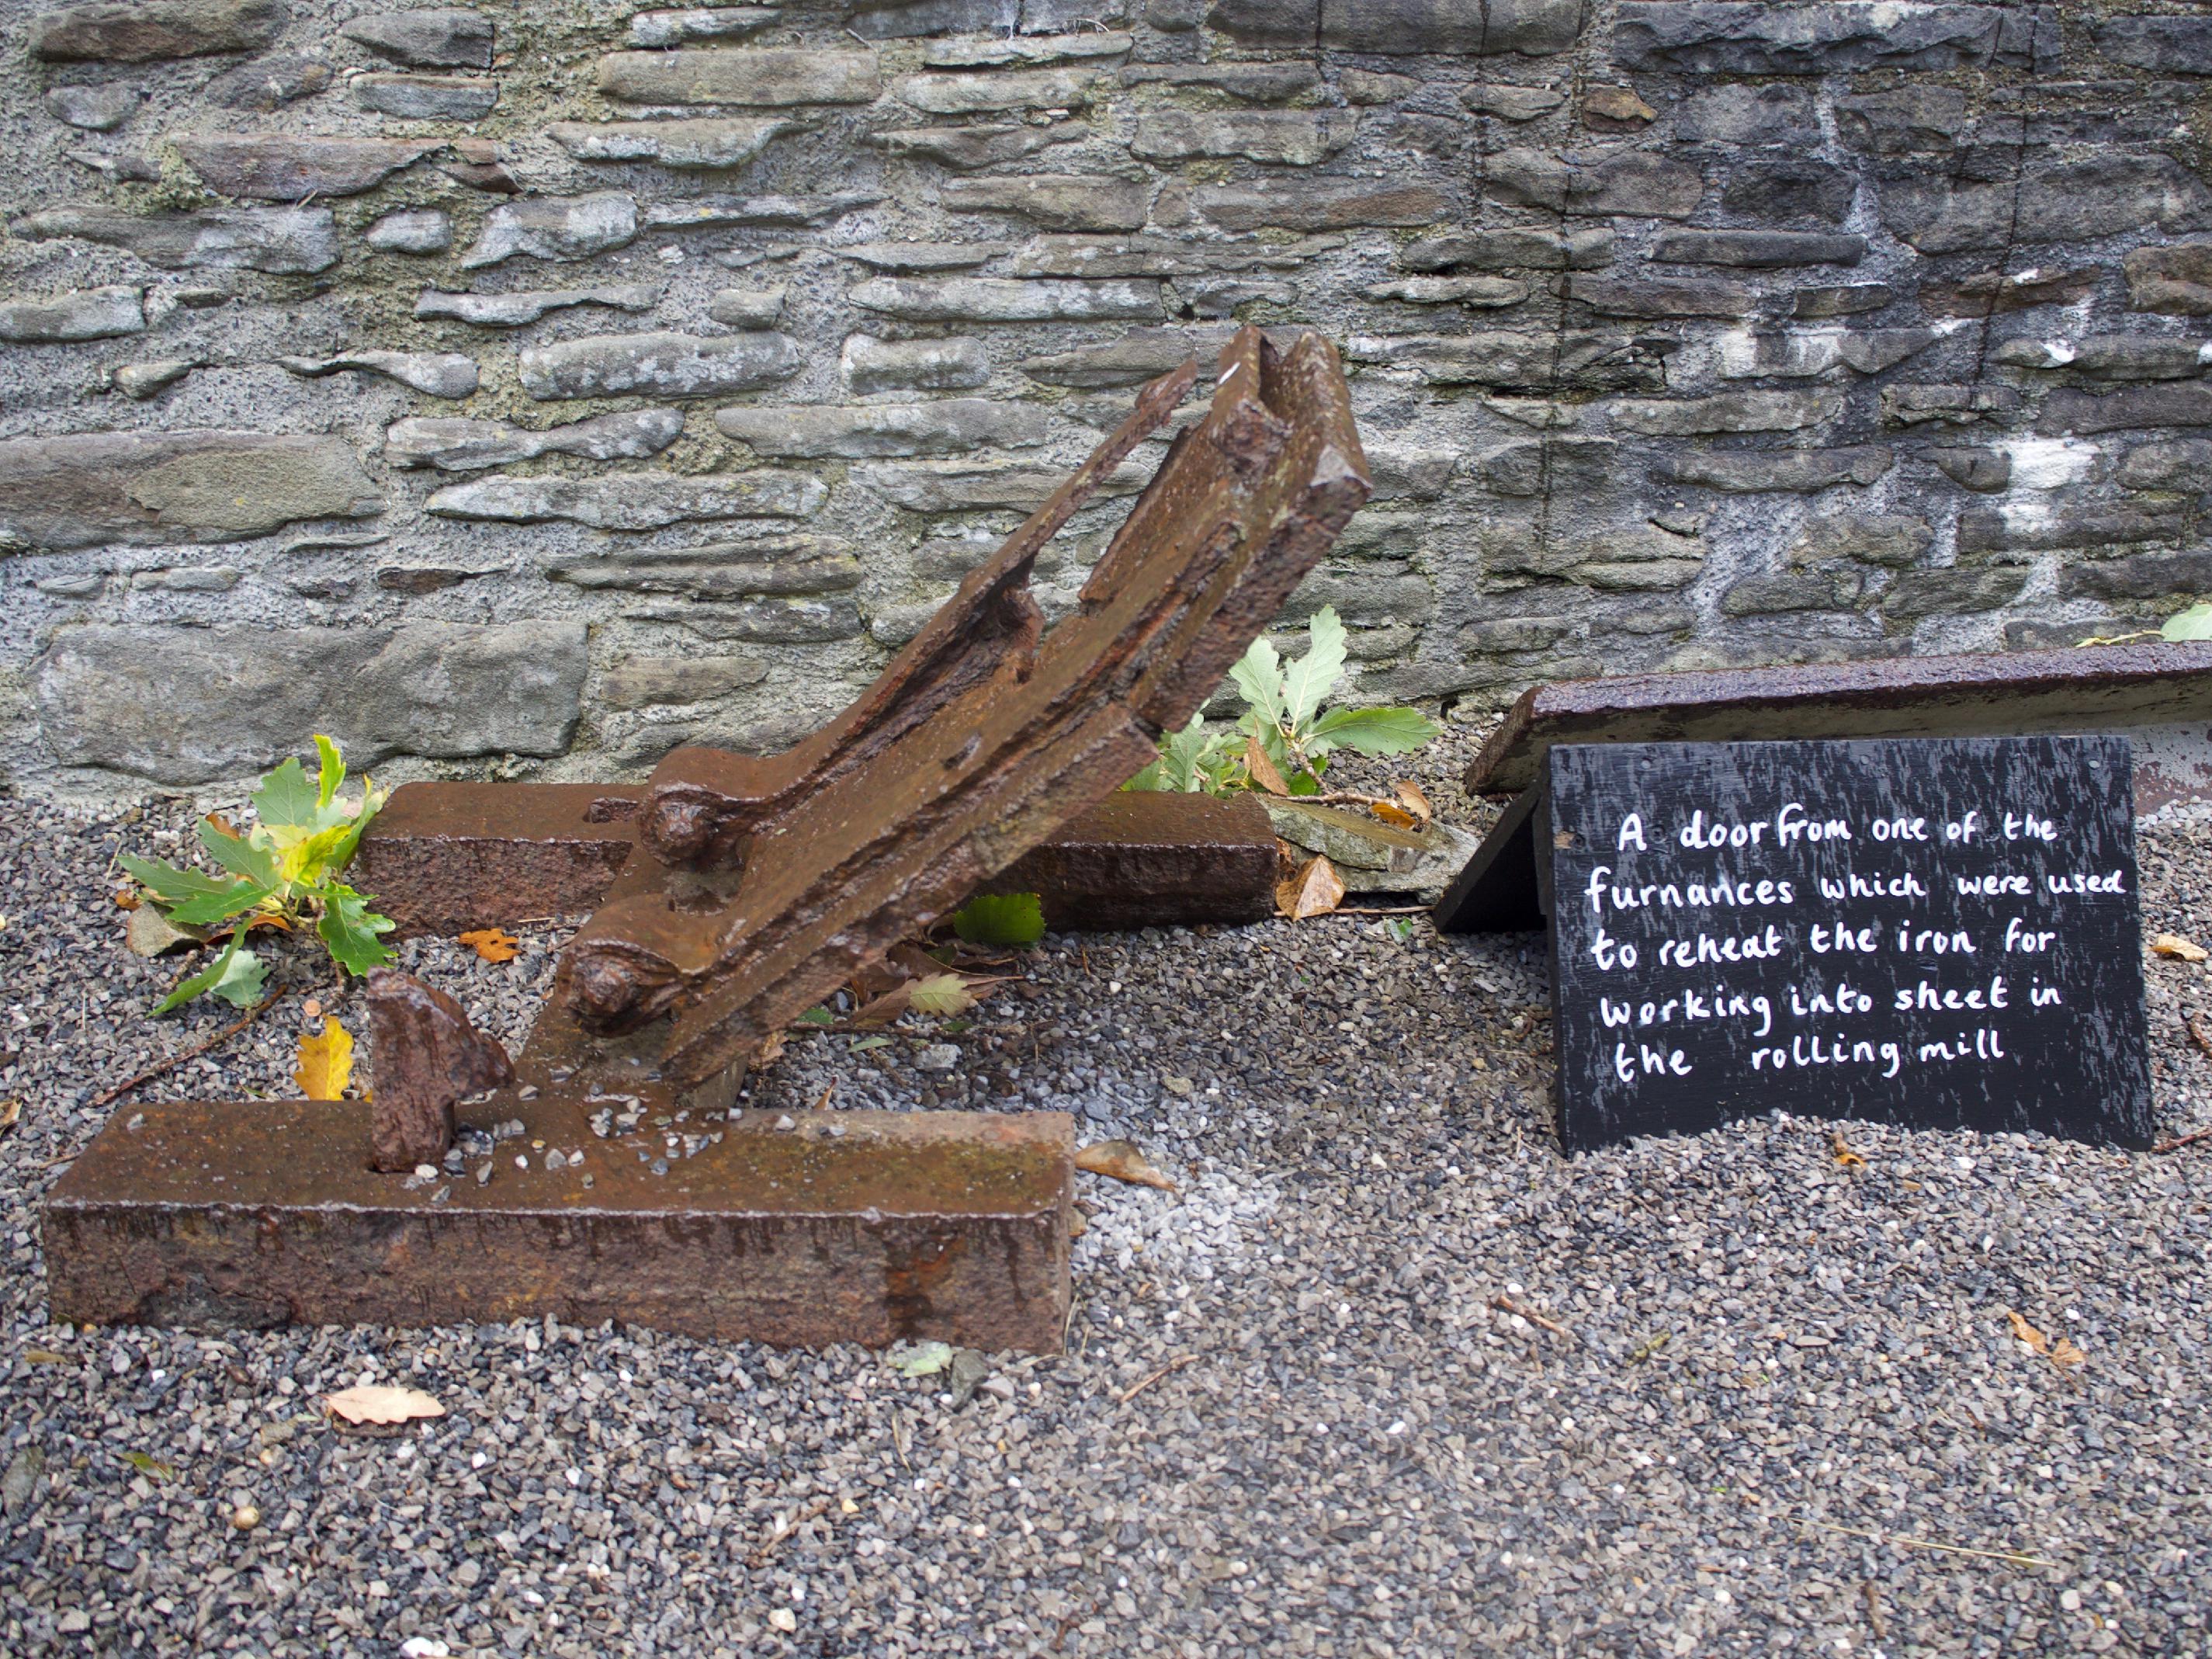 A door from one of the
furnances which were used
to reheat the iron for
working into sheet in
the rolling mill